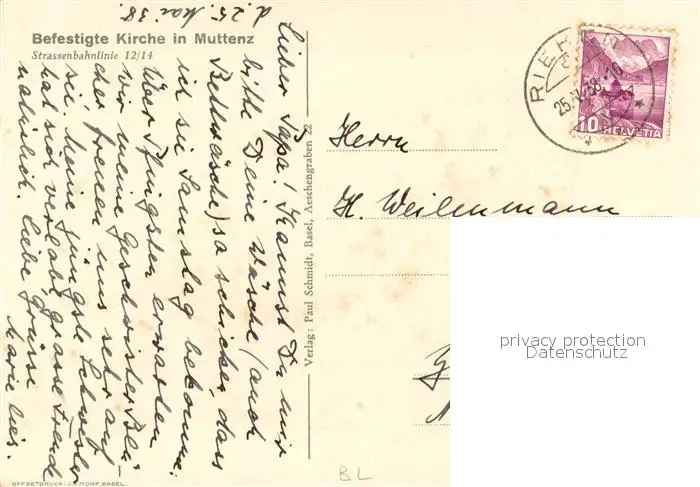 d. 25. Mai 38.
Befestigte Kirche in Muttenz
Strassenbahnlinie 12/14
Lieber Papa! Kannst Du mir
bitte Deine Wäsche (auch
Bettwäsche) so schicken, dass
ich sie Samstag bekomme.
Über Pfingsten erwarten
wir meine Geschwister
cher freuen uns sehr auf
sie. Meine jüngste Schwester
hat sich verlobt, grosse Freude
natürlich. Liebe Grüsse
Marielies.
Verlag: Paul Schmidt, Basel, Aeschengraben 22
RIEHEN
25.V.38.-10
10 HELVETIA
Herrn
H. Weilenmann
privacy protection
Datenschutz
BL
OFFSETDRUCK: J.S. HOPF, BASEL.